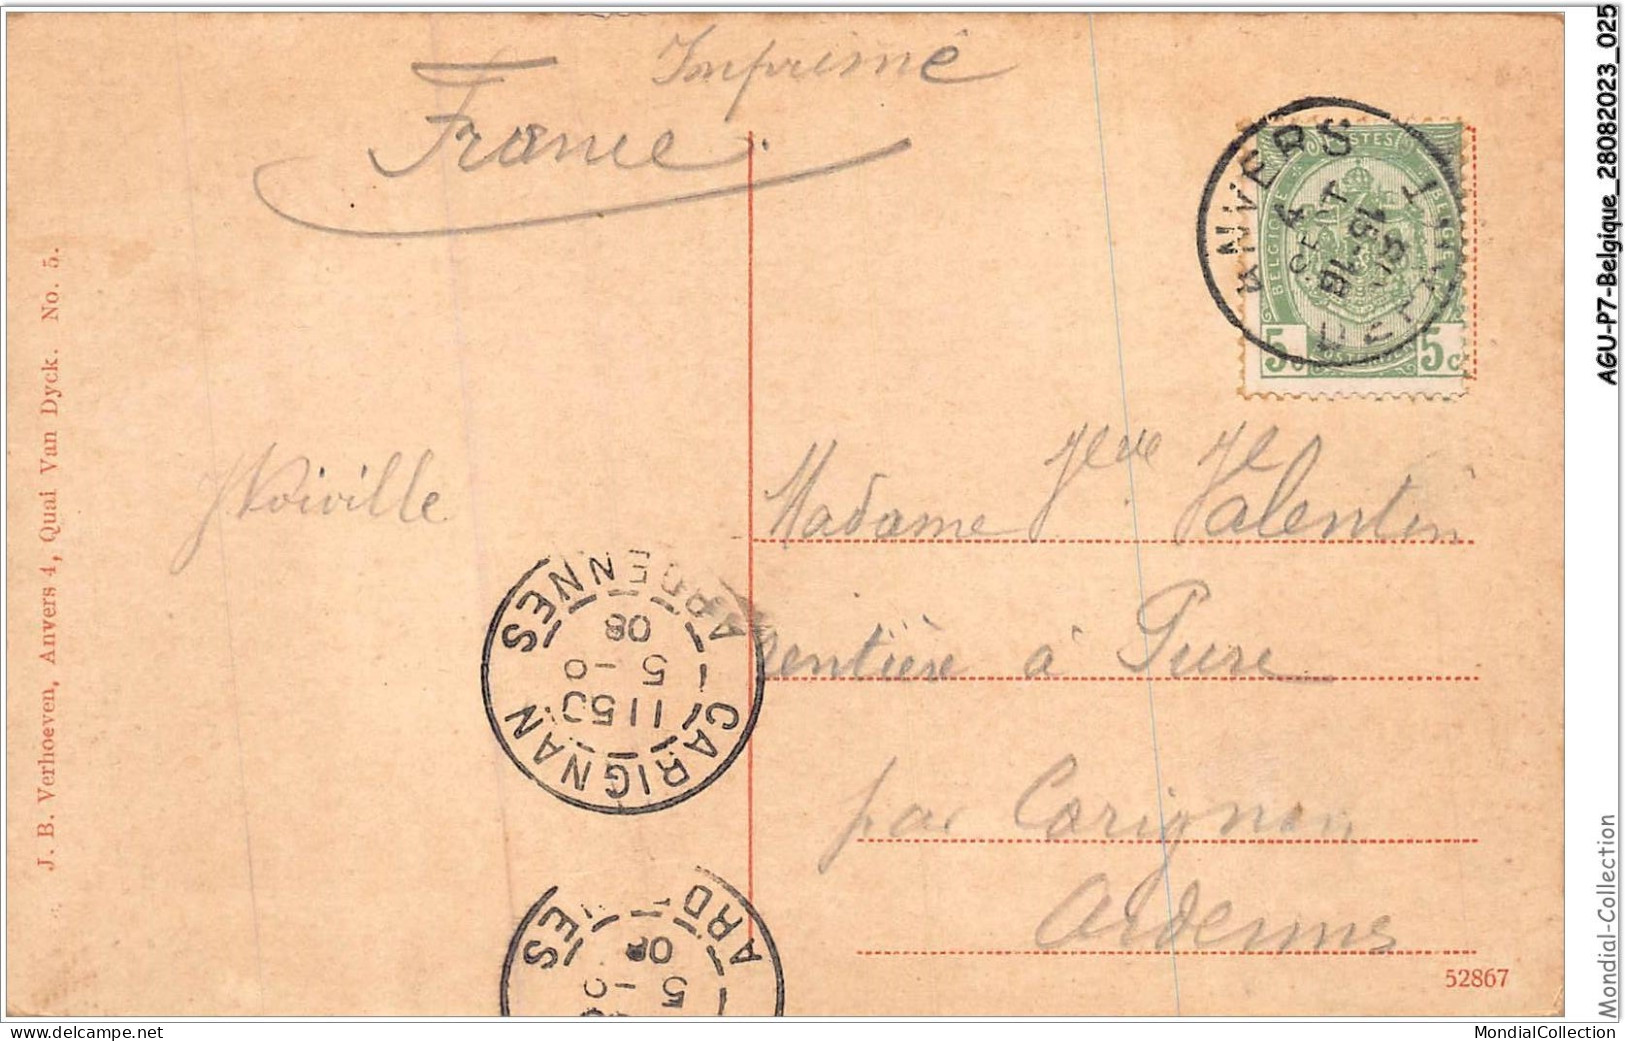 Imprimé
France.
ANVERS
DÉPART
4
SEPT
18-19
1908
POSTES
BELGIQUE
BELGIE
5c
5c
JVoiville
Madame Vve Je Valentin
rentière à Pure
par Carignan
Ardennes
CARIGNAN
ARDENNES
1150
5-9
08
ARD
ES
5-9
08
J. B. Verhoeven, Anvers 4, Quai Van Dyck. No. 5.
52867
AGU-P7-Belgique_28082023_025
Mondial-Collection
www.delcampe.net
MondialCollection